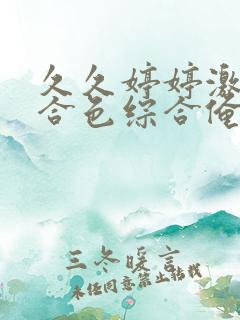 久久婷婷激
合色综合俺
三冬暖言
未经同意禁止转载